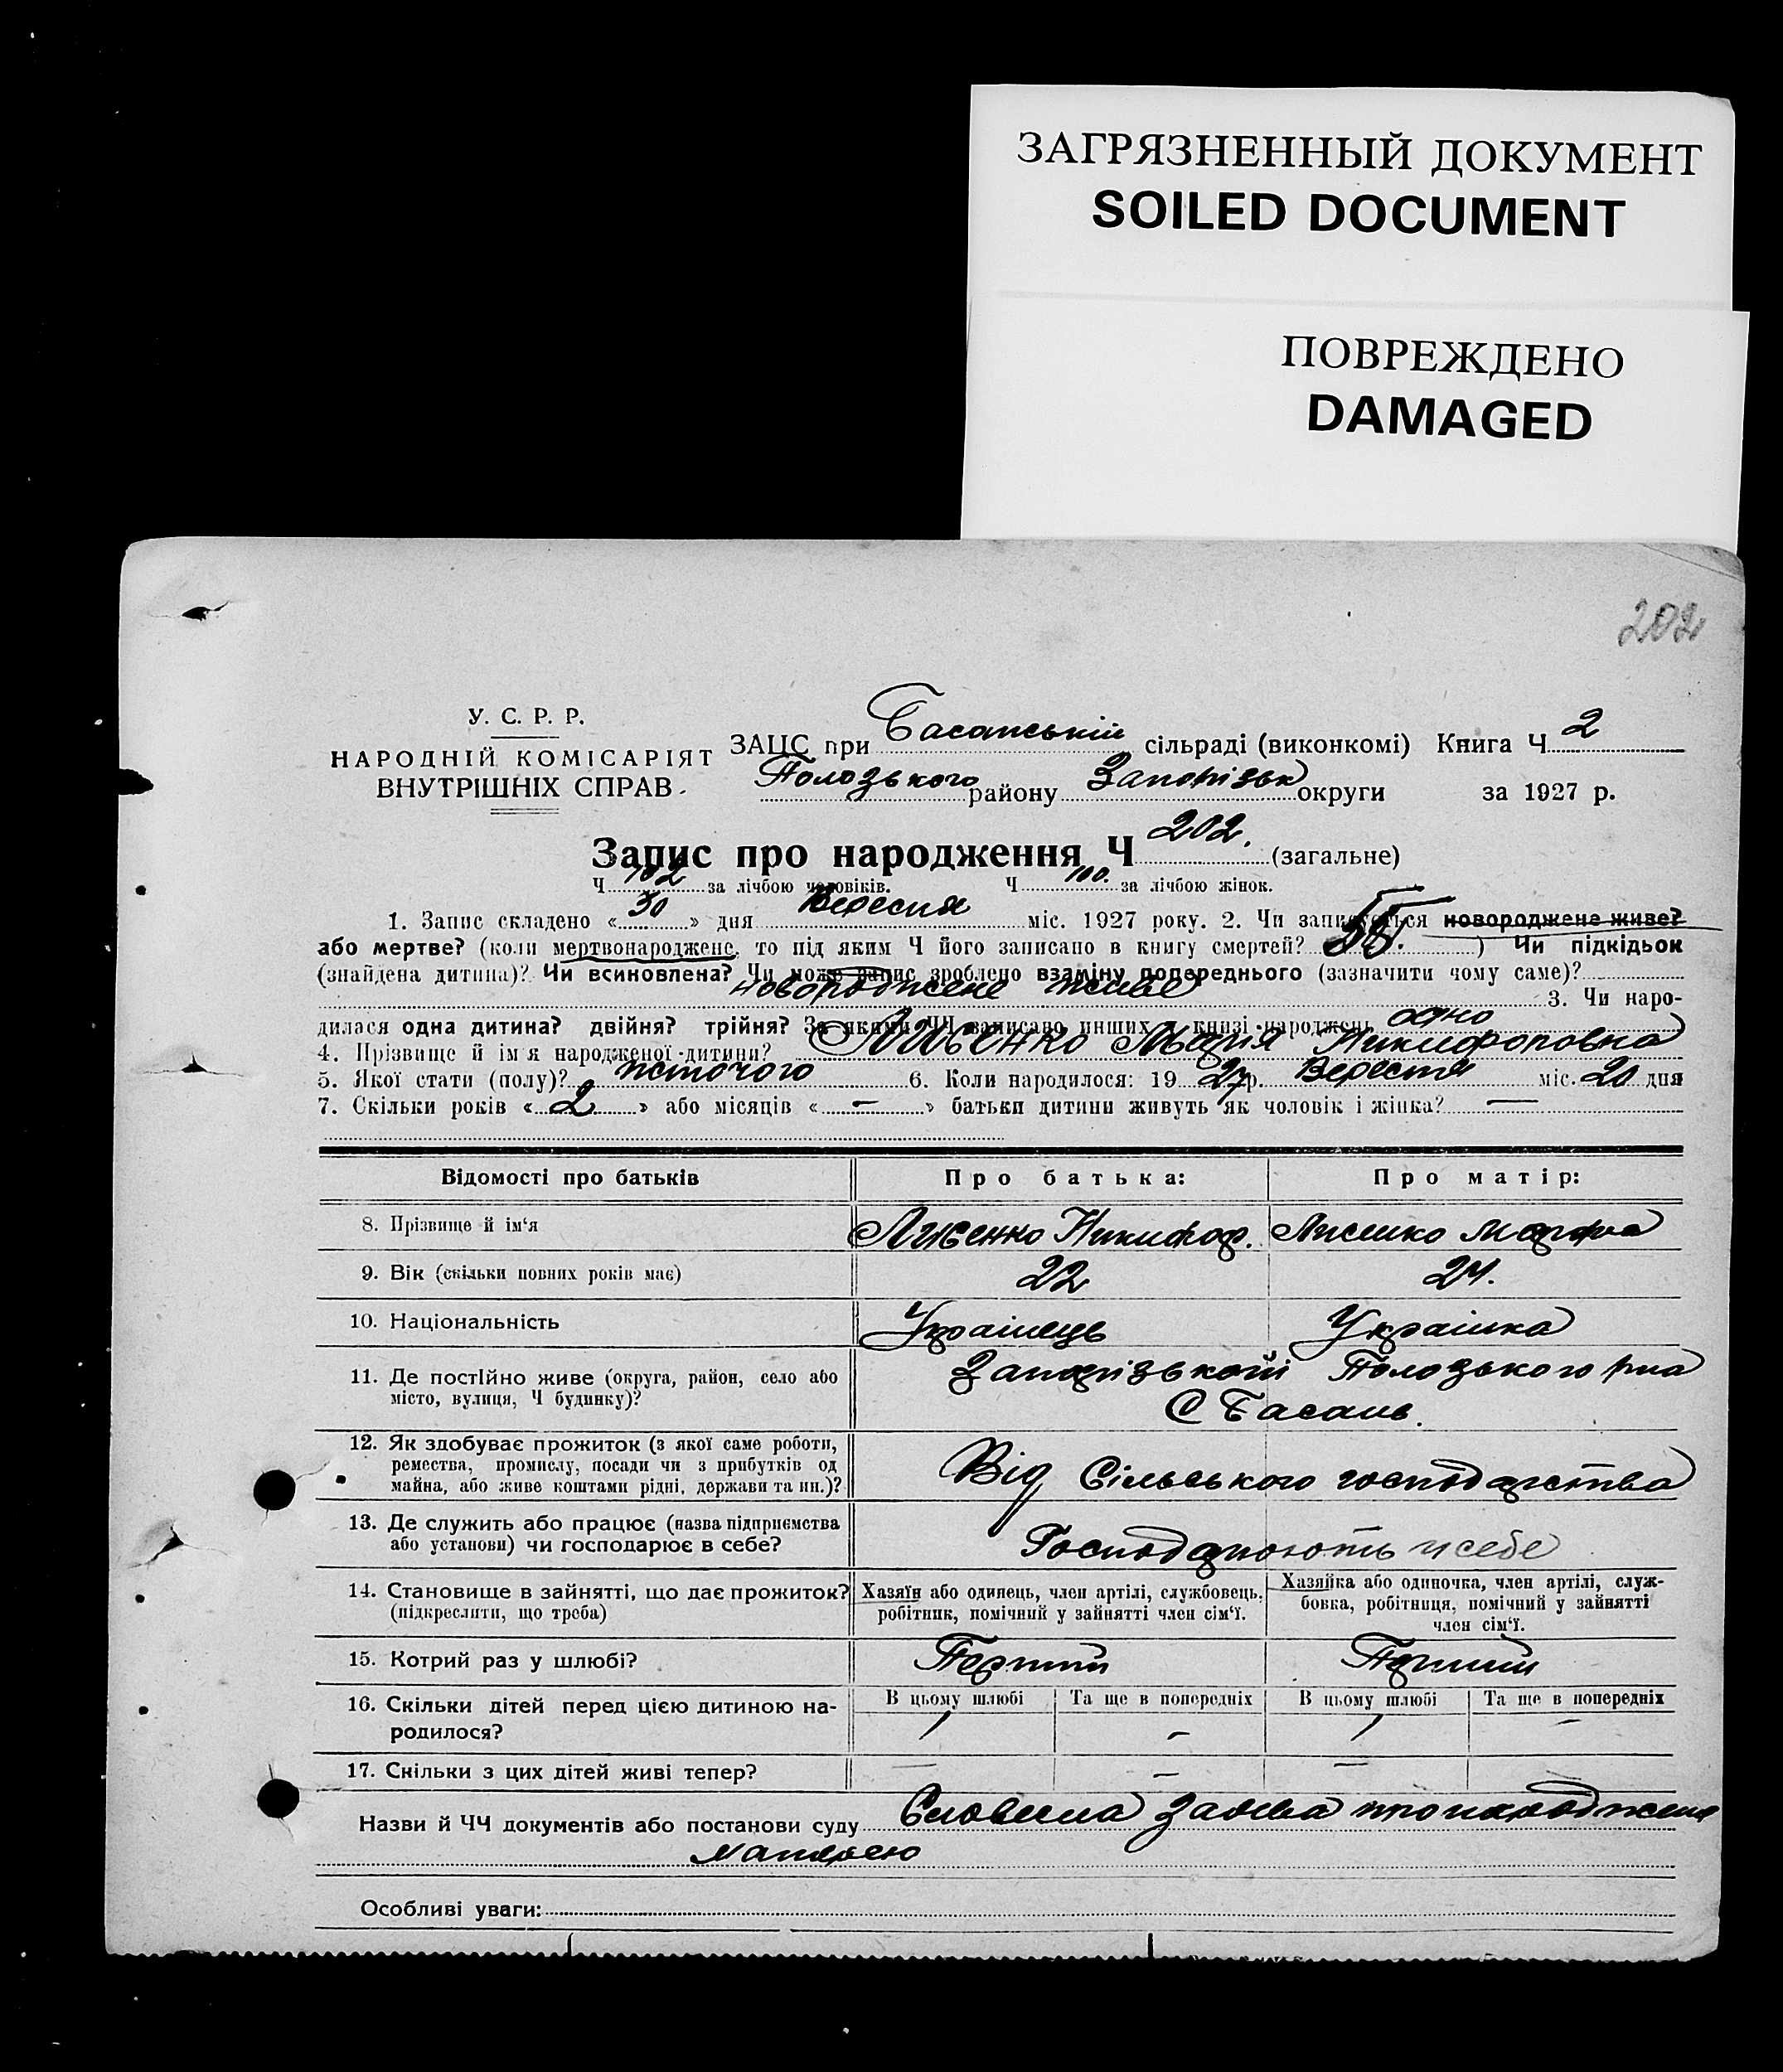 ЗАГРЯЗНЕННЫЙ ДОКУМЕНТ
SOILED DOCUMENT
ПОВРЕЖДЕНО
DAMAGED
202
У. С. Р. Р.
НАРОДНІЙ КОМІСАРІЯТ
ВНУТРІШНІХ СПРАВ
ЗАЦС при Басанській сільраді (виконкомі) Книга Ч 2
Полозького району Запорізьк округи за 1927 р.
Запис про народження Ч 202. (загальне)
Ч 102 за лічбою чоловіків. Ч 100. за лічбою жінок.
1. Запис складено «30» дня Вересня міс. 1927 року. 2. Чи записується новороджене живе?
або мертве? (коли мертвонароджене, то під яким Ч його записано в книгу смертей? ) Чи підкідьок
(знайдена дитина)? Чи всиновлена? Чи може запис зроблено взаміну попереднього (зазначити чому саме)?
новороджене живе 3. Чи наро-
дилася одна дитина? двійня? трійня? За якими ЧЧ записано инших в книзі народжень одно
4. Прізвище й імя народженої дитини? Лисенко Марія Никифоровна
5. Якої стати (полу)? жіночого 6. Коли народилося: 1927 р. Вересня міс. 20 дня
7. Скільки років «2» або місяців «—» батьки дитини живуть як чоловік і жінка? —
Відомості про батьків Про батька: Про матір:
8. Прізвище й ім'я Лисенко Никифор. Лисенко Марфа
9. Вік (скільки повних років має) 22 24.
10. Національність Українець Українка
11. Де постійно живе (округа, район, село або Запорізької Полозького р-на
місто, вулиця, Ч будинку)? С Басань.
12. Як здобуває прожиток (з якої саме роботи,
ремества, промислу, посади чи з прибутків од Від Сільського господарства
майна, або живе коштами рідні, держави та ин.)?
13. Де служить або працює (назва підприємства
або установи) чи господарює в себе? Господарюють у себе
14. Становище в зайнятті, що дає прожиток? Хазяїн або одинець, член артілі, службовець, Хазяйка або одиночка, член артілі, служ-
(підкреслити, що треба) робітник, помічний у зайнятті член сім'ї. бовка, робітниця, помічний у зайнятті
член сім'ї.
15. Котрий раз у шлюбі? Перший Перший
16. Скільки дітей перед цією дитиною на- В цьому шлюбі Та ще в попередніх В цьому шлюбі Та ще в попередніх
родилося? 1 - 1 -
17. Скільки з цих дітей живі тепер? — — —
Назви й ЧЧ документів або постанови суду Словесна заява про народження
матерею
Особливі уваги: